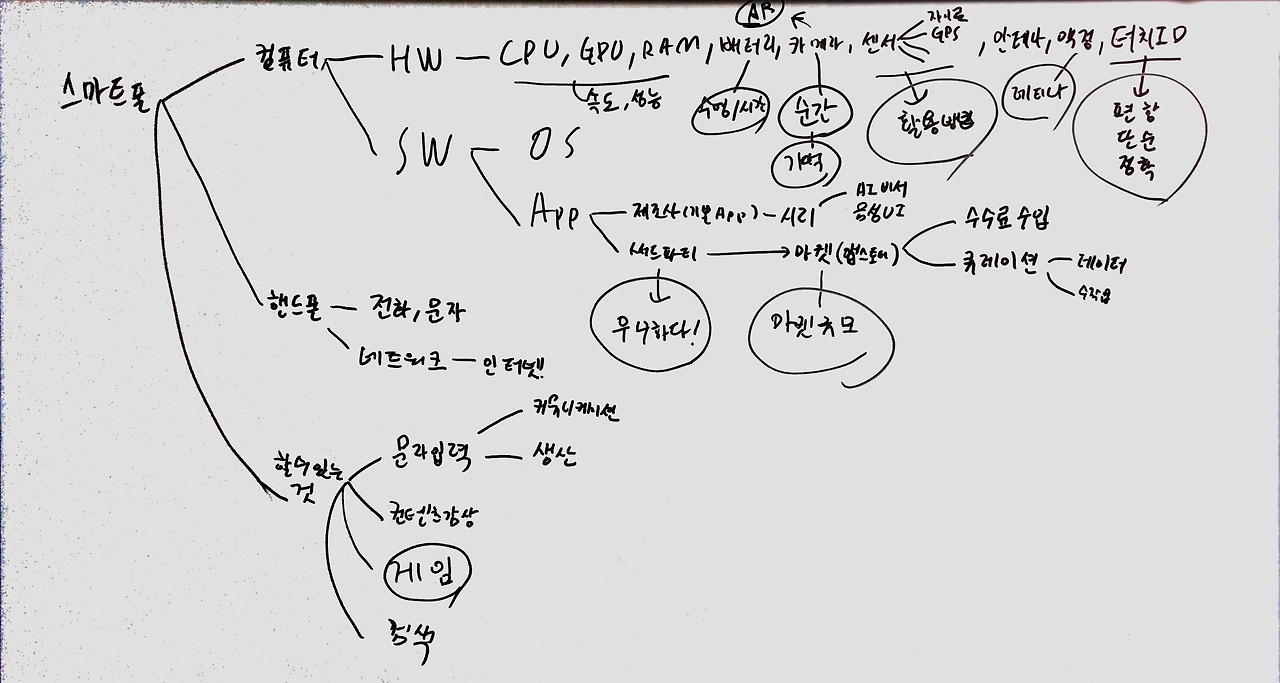 AR
자이로
GPS
컴퓨터 HW CPU, GPU, RAM, 배터리, 카메라, 센서, 안테나, 액정, 터치ID
스마트폰
속도, 성능
수명/시간
순간
활용방법
레티나
편함
단순
정확
기억
SW OS
App 제조사(기본App) - 시리
AI비서
음성UI
써드파티 마켓(앱스토어)
수수료 수입
큐레이션 데이터
수작업
무수하다!
마켓규모
핸드폰 전화, 문자
네트워크 인터넷!
할수있는
것
문자입력
커뮤니케이션
생산
컨텐츠감상
게임
검색